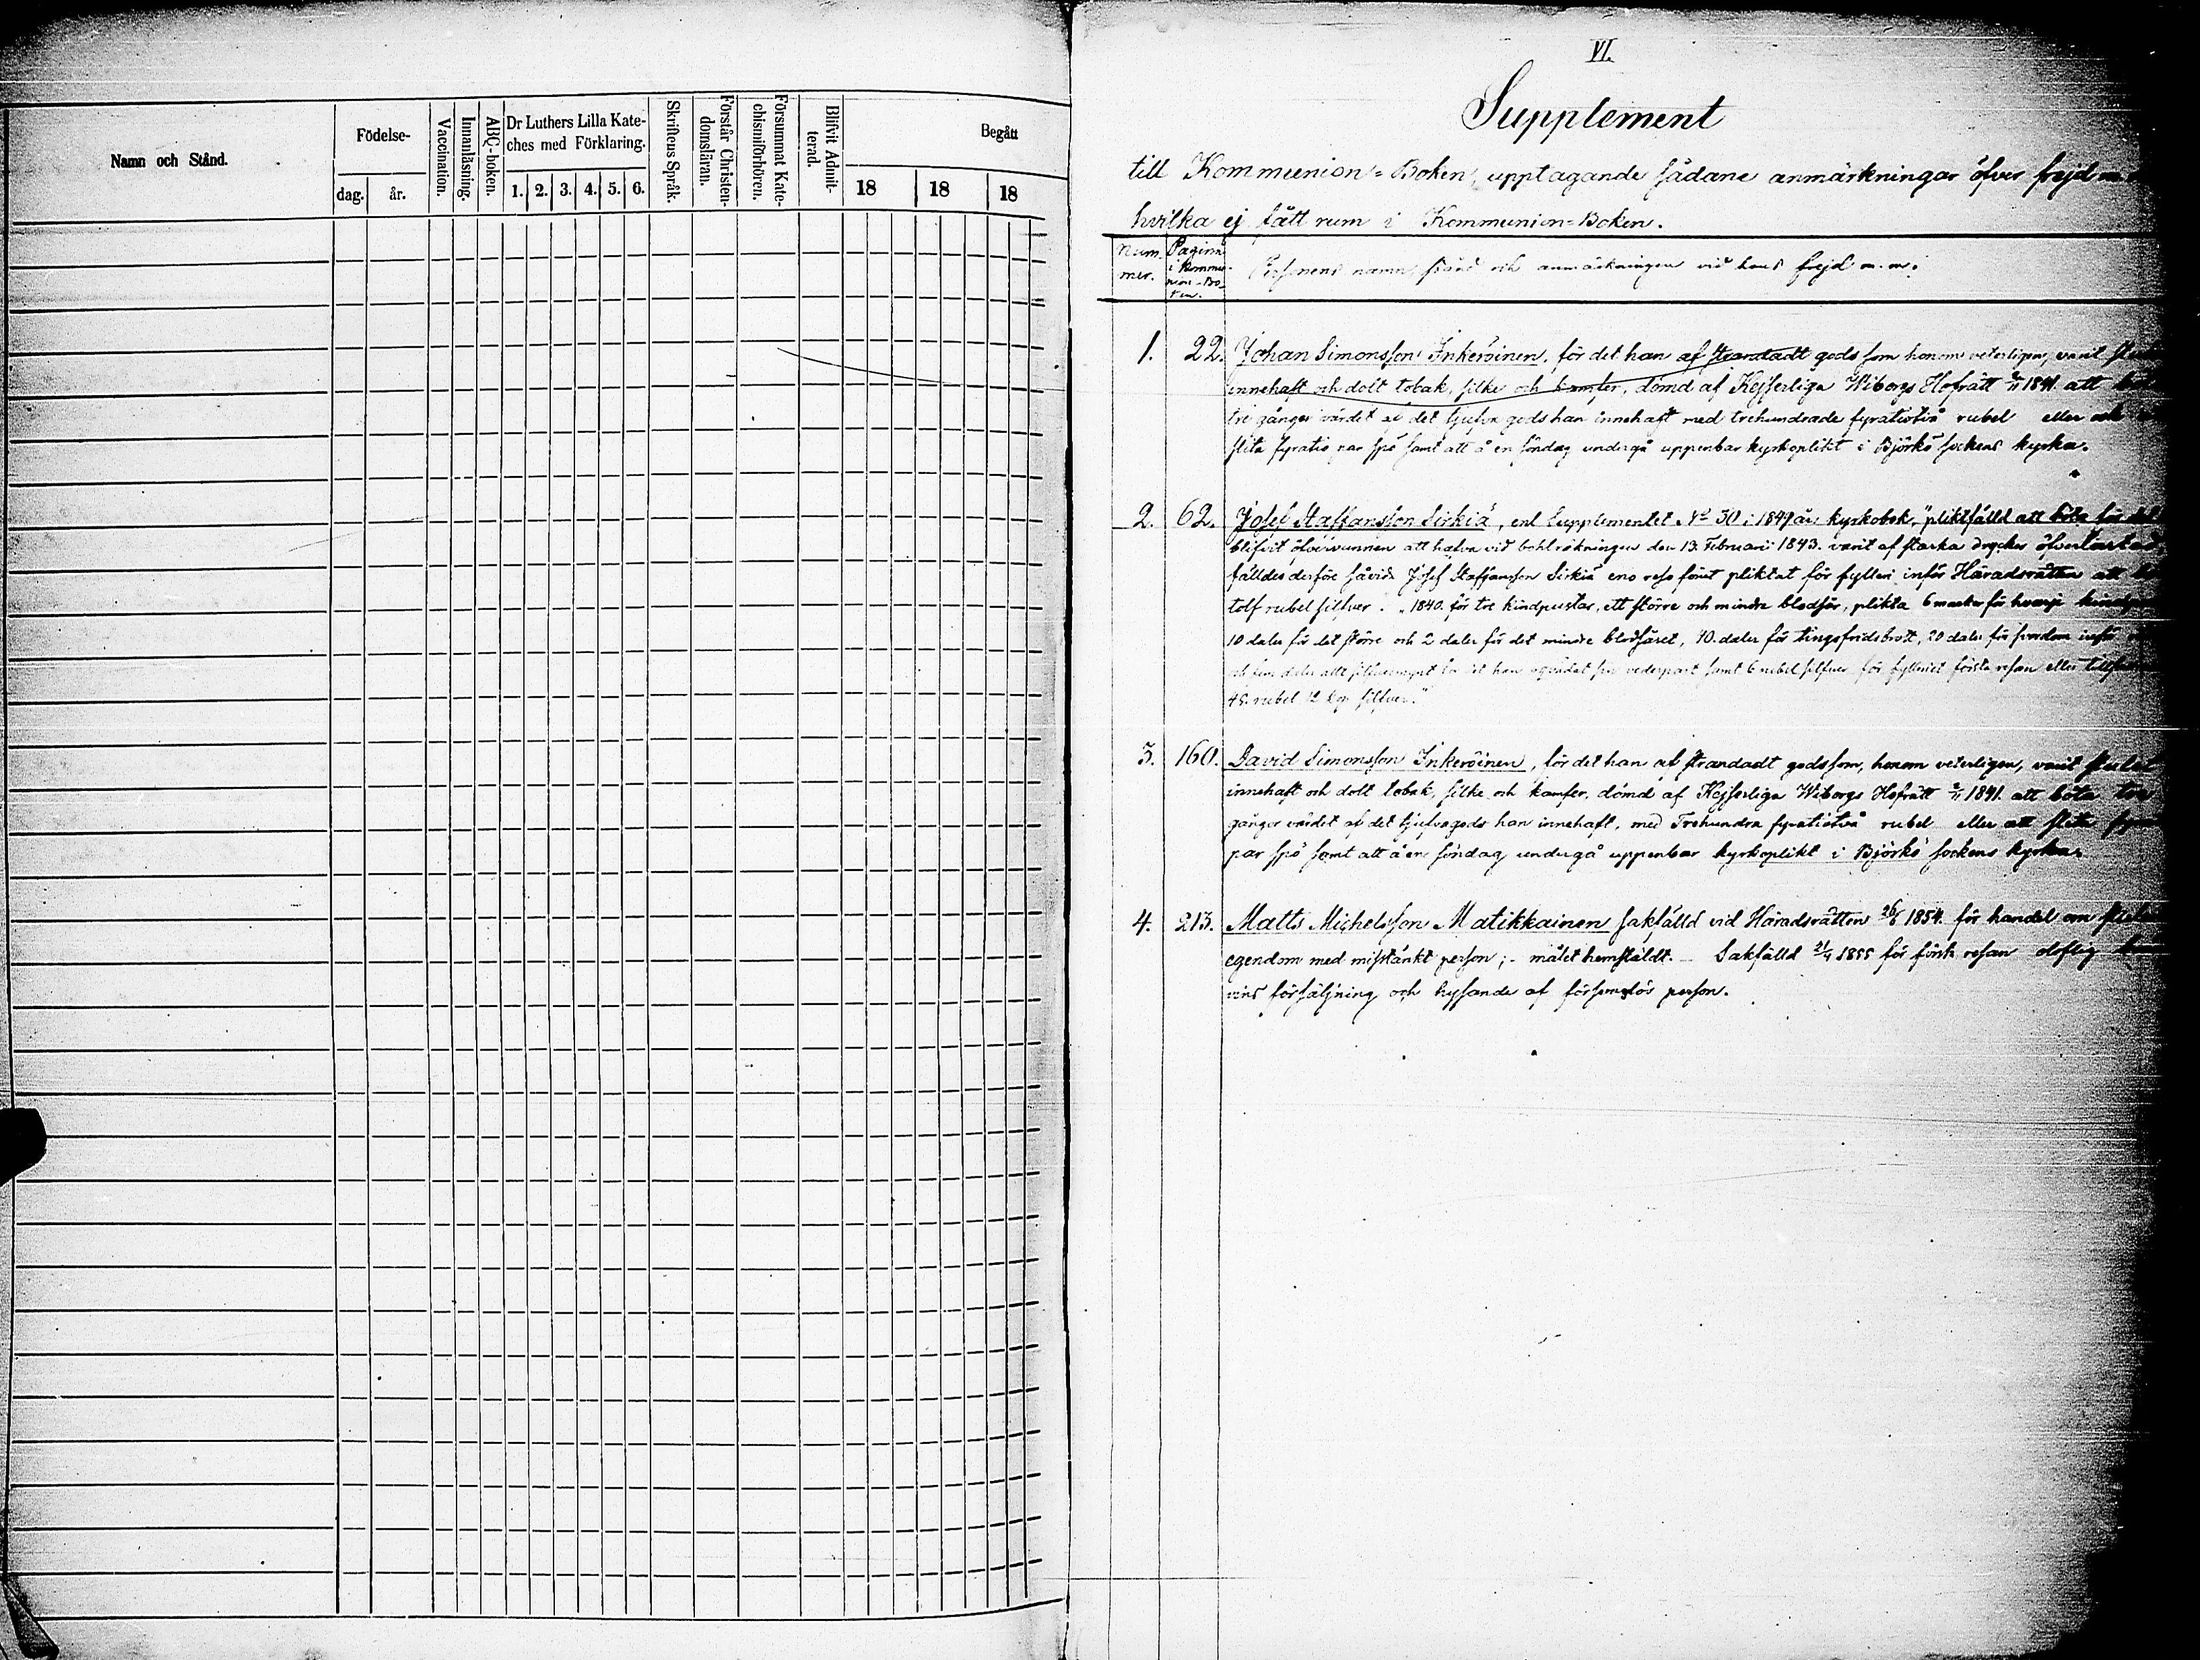 Namn och Stånd.
Födelse-
dag.
år.
Vaccination.
Innanläsning.
ABC-boken.
Dr Luthers Lilla Kate-
ches med Förklaring.
1. 2. 3. 4. 5. 6.
Skriftens Språk.
Förstår Christen-
domsläran.
Försummat Kate-
chismiförhören.
Blifvit Admit-
terad.
Begått
18 18 18
VI.
Supplement
till Kommunion-Boken, upptagande sådane anmärkningar öfver frejd m.
hvilka ej fått rum i Kommunion-Boken.
Num-
mer.
Pagina
i Kommu-
nion-Bo-
ken.
Personens namn, stånd och anmärkningen vid hans frejd m.m.
1. 22. Johan Simonsson Inkeröinen, för det han af strandadt gods som honom veterligen, varit
innehaft och dolt tobak, silke och kamfer, dömd af Kejserliga Wiborgs Hofrätt 1841. att
tre gånger värdet af det tjufva gods han innehaft med trehundrade fyratiotvå rubel eller
slita fyratio par spö samt att å en söndag undergå uppenbar kyrkoplikt i Björkö sockens kyrka.
2. 62. Josef Staffansson Sirkiä, enl. Supplementet No 30 i 1849 års kyrkobok, "pliktfälld att böta för
blifvit öfvervunnen att hafva vid bohlräkningen den 13 Februari 1843. varit af starka drycker öfverlastad
fälldes derföre såvida Josef Staffansson Sirkiä en reso förut pliktat för fylleri inför Häradsrätten att
tolf rubel silfver. "1840. för tre kindpustar, ett större och mindre blodsår, plikta 6 marker för hvarje
10 daler för det större och 2 daler för det mindre blodsåret, 40 daler för tingsfridsbrott, 20 daler för svordom inför
och fem daler allt silfvermynt för det han oqvädat sin vederpart samt 6 rubel silfver för fylleriet första resan eller
45 rubel 12 kop. silfver."
3. 160. David Simonsson Inkeröinen, för det han af strandadt gods som, honom veterligen, varit
innehaft och dolt tobak, silke och kamfer, dömd af Kejserliga Wiborgs Hofrätt 1841. att böta tre
gånger värdet af det tjufvagods han innehaft, med Trehundra fyratiotvå rubel eller att slita
par spö samt att å en söndag undergå uppenbar kyrkoplikt i Björkö sockens kyrka.
4. 213. Matts Michelsson Matikkainen sakfälld vid Häradsrätten 1854. för handel om
egendom med misstänkt person; målet hemställdt. Sakfälld 21/4 1855 för första resan oloflig
vins försäljning och hysande af försvarslös person.